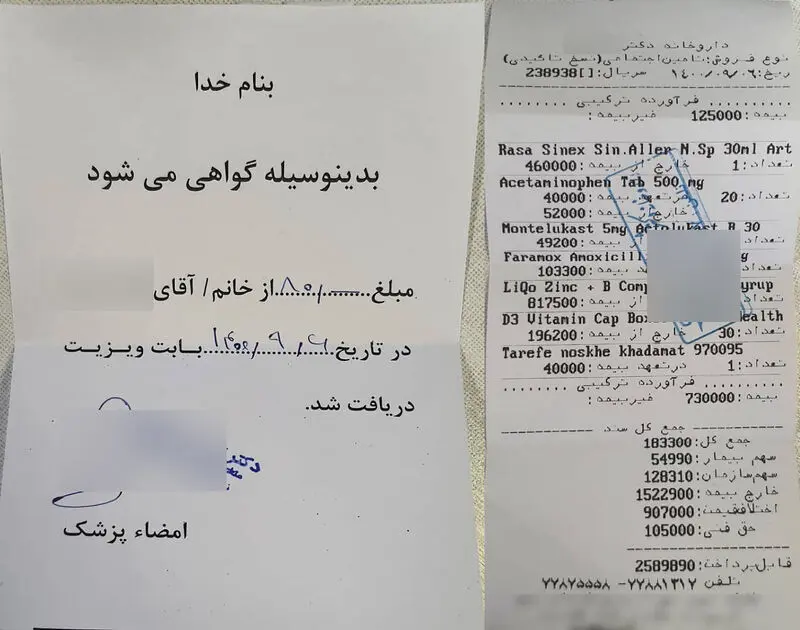 بنام خدا
بدینوسیله گواهی می شود
مبلغ ۸۵۰/۰۰۰ از خانم/ آقای
در تاریخ ۱۴۰۰/۹/۶ بابت ویزیت
دریافت شد.
دکتر
امضاء پزشک
داروخانه دکتر
نوع فروش:تامین‌اجتماعی(نسخ تاکیدی)
ریخ:۱۴۰۰/۰۹/۰۶ سریال:[]238938
فرآورده ترکیبی
بیمه:125000 غیربیمه:
Rasa Sinex Sin.Aller N.Sp 30ml Art
تعداد:1 خارج از بیمه:460000
Acetaminophen Tab 500 mg
تعداد:20 درتعهد بیمه:40000
خارج از بیمه:52000
Montelukast 5mg Actolukast B 30
تعداد از بیمه:49200
Faramox Amoxicill g
تعداد هد بیمه:103300
LiQo Zinc + B Comp yrup
تعداد از بیمه:817500
D3 Vitamin Cap Box ealth
تعداد:30 خارج از بیمه:196200
Tarefe noskhe khadamat 970095
تعداد:1 درتعهد بیمه:40000
فرآورده ترکیبی
بیمه:730000 غیربیمه:
جمع کل سند
جمع کل:183300
سهم بیمار:54990
سهم‌سازمان:128310
خارج بیمه:1522900
اختلاف‌قیمت:907000
حق فنی:105000
قابل‌پرداخت:2589890
تلفن ۲۲۸۸۱۳۱۲- ۲۲۸۲۵۵۵۸